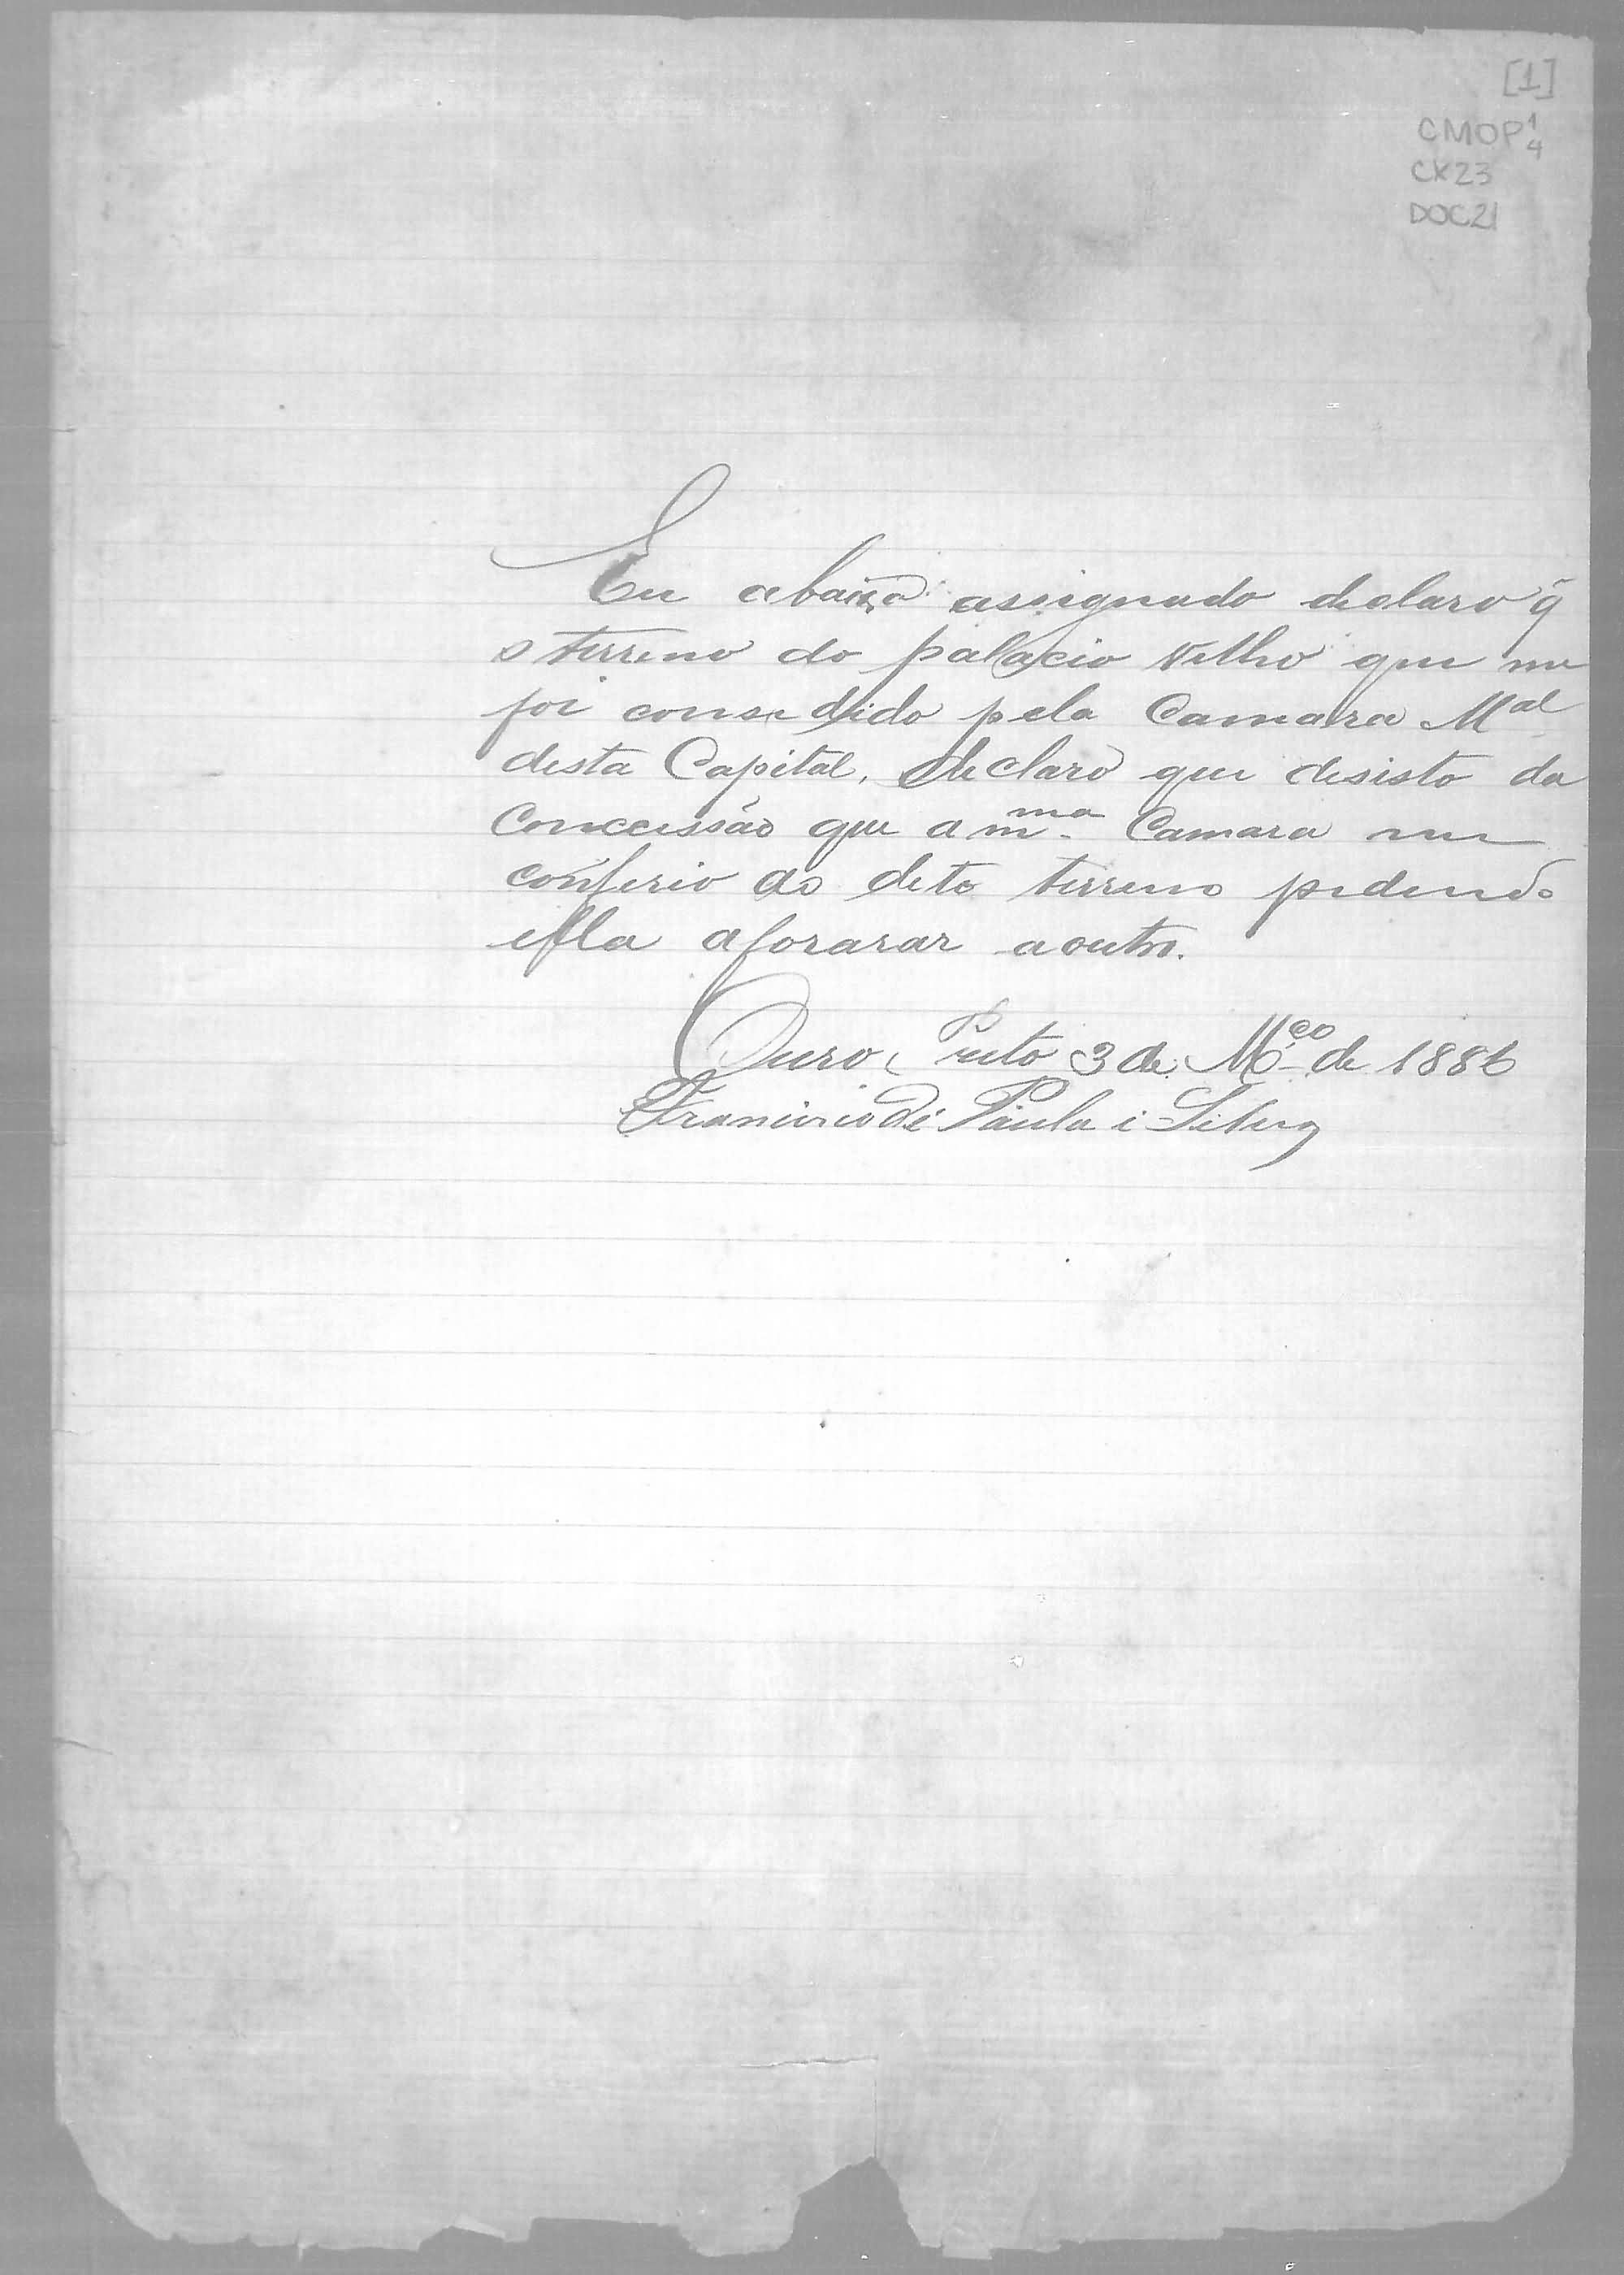 [1]
CMOP 1/4
CX23
DOC21
Eu abaixo assignado declaro q̃
o terreno do palacio velho que me
foi consedido pela Camara M.al
desta Capital, declaro que desisto da
Conceissão que a m.ma Camara me
conferio do dito terreno podendo
ella aforarar a outro.
Ouro Preto 3 de M.ço de 1886
Francisco de Paula e Silva